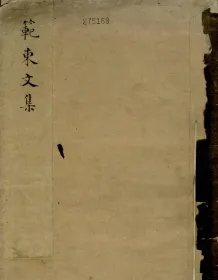 範東文集